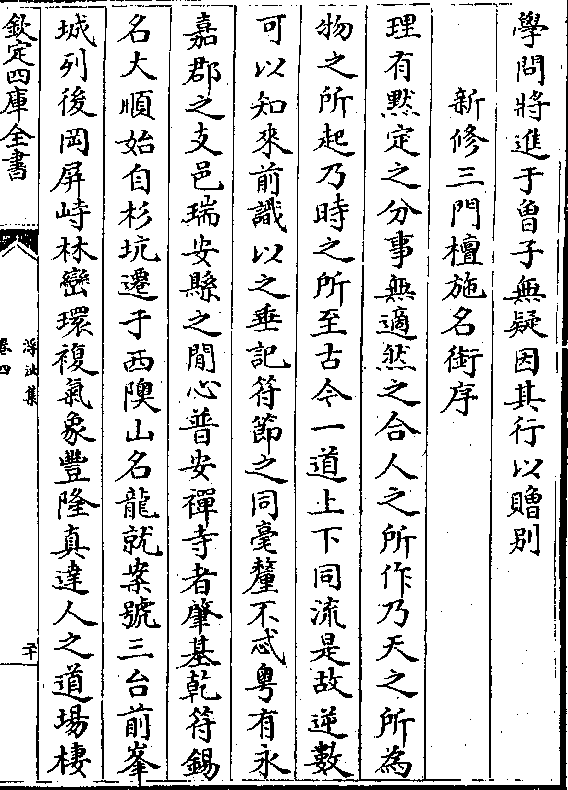 學問將進于曾子無疑因其行以贈别
新修三門檀施名銜序
理有黙定之分事無適然之合人之所作乃天之所為
物之所起乃時之所至古今一道上下同流是故逆數
可以知來前識以之垂記符節之同毫釐不忒粤有永
嘉郡之支邑瑞安縣之間心普安禪寺者肇基乾符錫
名大順始自杉坑遷于西隩山名龍就案號三台前峯
城列後岡屏峙林巒環複氣象豐隆真達人之道塲棲
欽定四庫全書
浮沚集
卷四